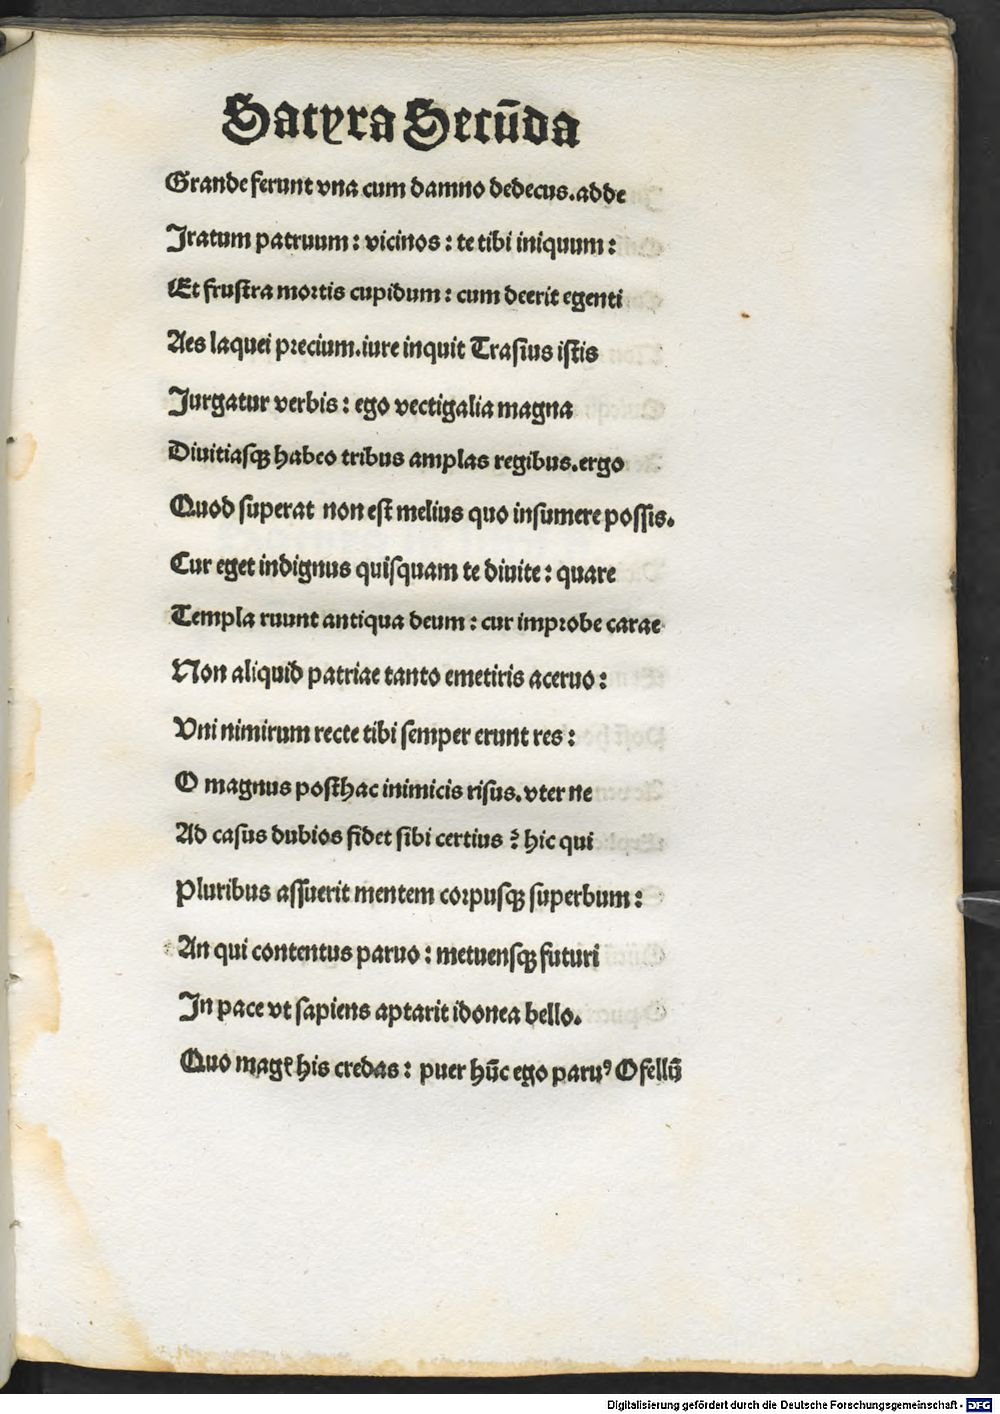 Satyra Secūda
Grande ferunt vna cum damno dedecus.adde
Iratum patruum : vicinos : te tibi iniquum :
Et frustra mortis cupidum : cum deerit egenti
Aes laquei precium.iure inquit Trasius istis
Iurgatur verbis : ego vectigalia magna
Diuitiasqꝫ habeo tribus amplas regibus.ergo
Quod superat non est melius quo insumere possis.
Cur eget indignus quisquam te diuite : quare
Templa ruunt antiqua deum : cur improbe carae
Non aliquid patriae tanto emetiris aceruo :
Vni nimirum recte tibi semper erunt res :
O magnus posthac inimicis risus.vter ne
Ad casus dubios fidet sibi certius ? hic qui
Pluribus assuerit mentem corpusqꝫ superbum :
An qui contentus paruo : metuensqꝫ futuri
In pace vt sapiens aptarit idonea bello.
Quo magꝭ his credas : puer hūc ego paruꝰ Ofellū
Digitalisierung gefördert durch die Deutsche Forschungsgemeinschaft - DFG